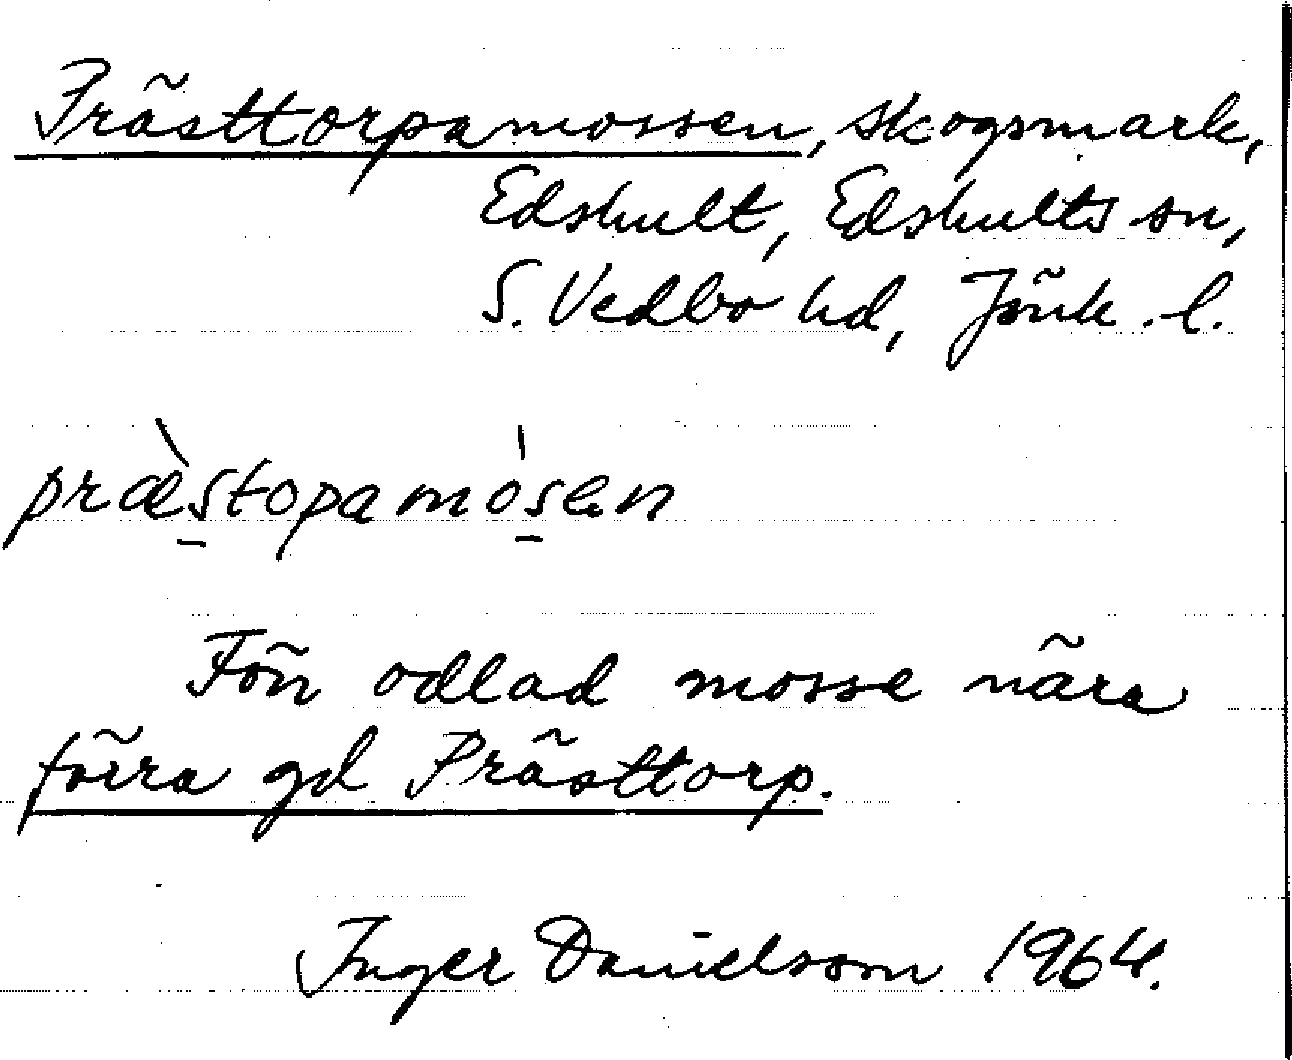 Prästtorpamossen, skogsmark,
Edshult, Edshults sn,
S. Vedbo hd, Jönk. l.
præ̀s̲topamós̲en
Förr odlad mosse nära
förra gd Prästtorp.
Inger Danielsson 1964.